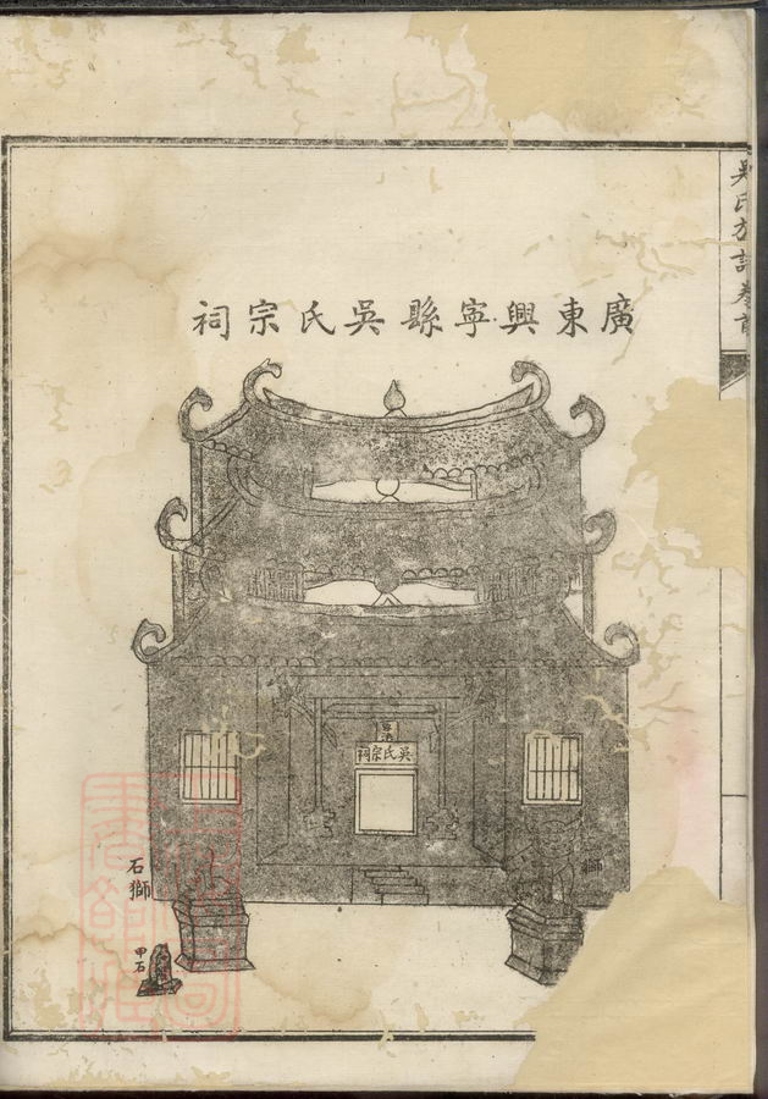 廣東興寧縣吳氏宗祠
吳氏族譜卷首
吳氏宗祠
石獅
獅
甲石